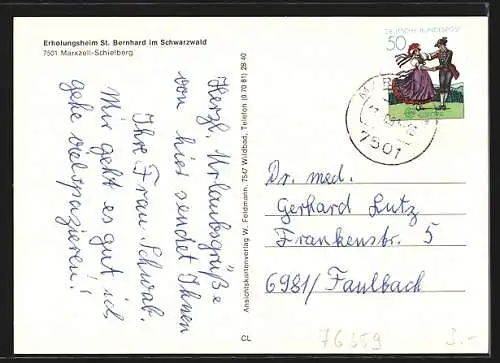 Erholungsheim St. Bernhard im Schwarzwald
7501 Marxzell-Schielberg
Herzl. Urlaubsgrüße
von hier sendet Ihnen
Ihre Frau Schwab.
Mir geht es gut ich
gehe viel spazieren!
Ansichtskartenverlag W. Feldmann, 7547 Wildbad, Telefon (0 70 81) 28 40
CL
DEUTSCHE BUNDESPOST
50
EUROPA
7501
Dr. med.
Gerhard Lutz
Frankenstr. 5
6981/ Faulbach
76359